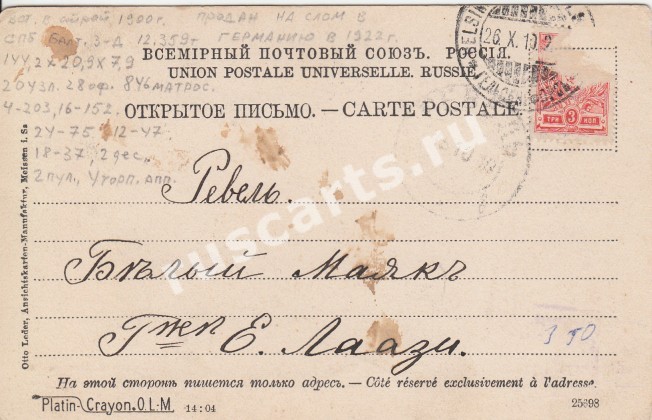 вст. в строй 1900г. продан на слом в
СПБ Балт. з-д 12.359т Германию в 1922г.
144,2 х 20,9 х 7,9
20 узл. 28 оф. 846 матрос.
4-203, 16-152
24-75, 12-47
18-37, 2 дес.
2 пул., 4 торп. апп.
ВСЕМІРНЫЙ ПОЧТОВЫЙ СОЮЗЪ. РОССІЯ.
UNION POSTALE UNIVERSELLE. RUSSIE.
ОТКРЫТОЕ ПИСЬМО. — CARTE POSTALE.
26.X.10
ТРИ 3 КОП
Ревель.
Бѣлый Маякъ
Гжѣ Е. Лаази.
3 90
На этой сторонѣ пишется только адресъ. — Côté réservé exclusivement à l'adresse.
Platin-Crayon.O.L-M. 14:04
25698
Otto Leder, Ansichtskarten-Manufaktur, Meissen i. Sa
ruscarts.ru